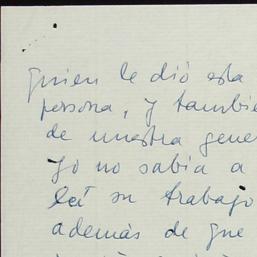 quien le dió esta
persona, y tambié
de nuestra gene
Yo no sabía a
leí su trabajo
además de que